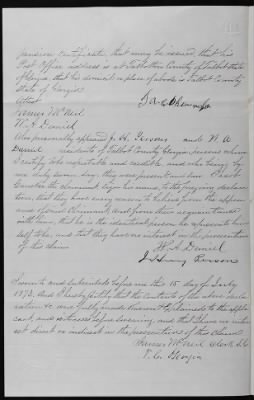 pension certificate that may be issued, that his
Post Office address is at Talbotton County of Talbot State
of Georgia that his domicil or place of abode is Talbot County
State of Georgia
Attest
James McNeil
W. A. Daniel
Also personally appeared J. H. Persons and W. A
Daniel residents of Talbot County Georgia persons whom
I certify to be respectable and credible, and who being by
me duly sworn say, they were present and saw
the claimant sign his name to the foregoing declara
tion, that they have every reason to believe from the appear
ance of said claimant and from their acquaintance
with him, that he is the identical person he represents him
self to be, and that they have no interest in the prosecution
of this claim
W. A. Daniel
J Henry Persons
Sworn to and subscribed before me this 15 day of July
1873. And I hereby certify that the contents of the above decla
ration &c were fully made known & explained to the appli
cant, and witnesses before swearing, and that I have no inter
est direct or indirect in the prosecution of this claim
James McNeil Clerk S.C
T. C. Georgia